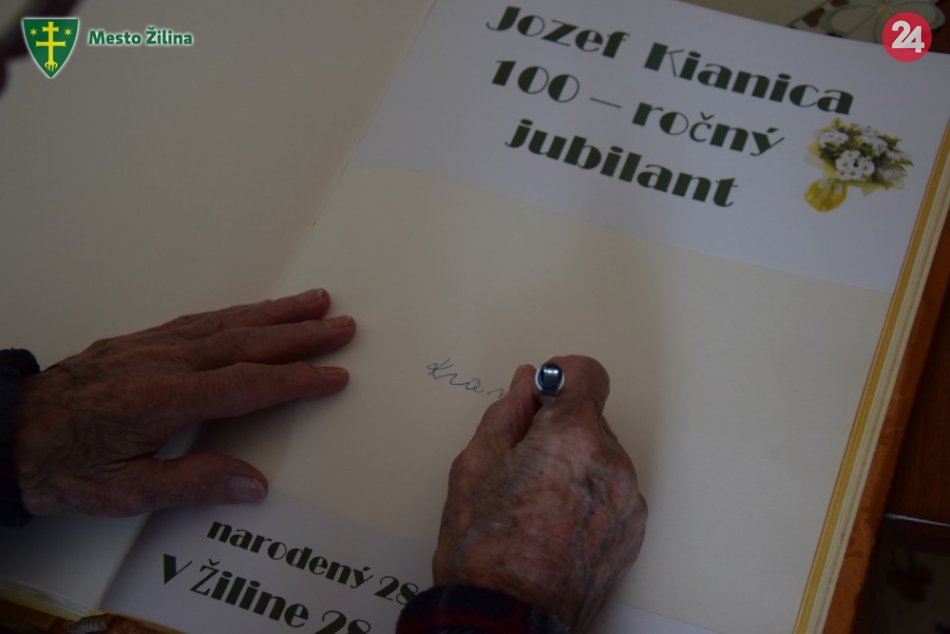 Mesto Žilina
24
Jozef Kianica
100 – ročný
jubilant
narodený 28
V Žiline 28